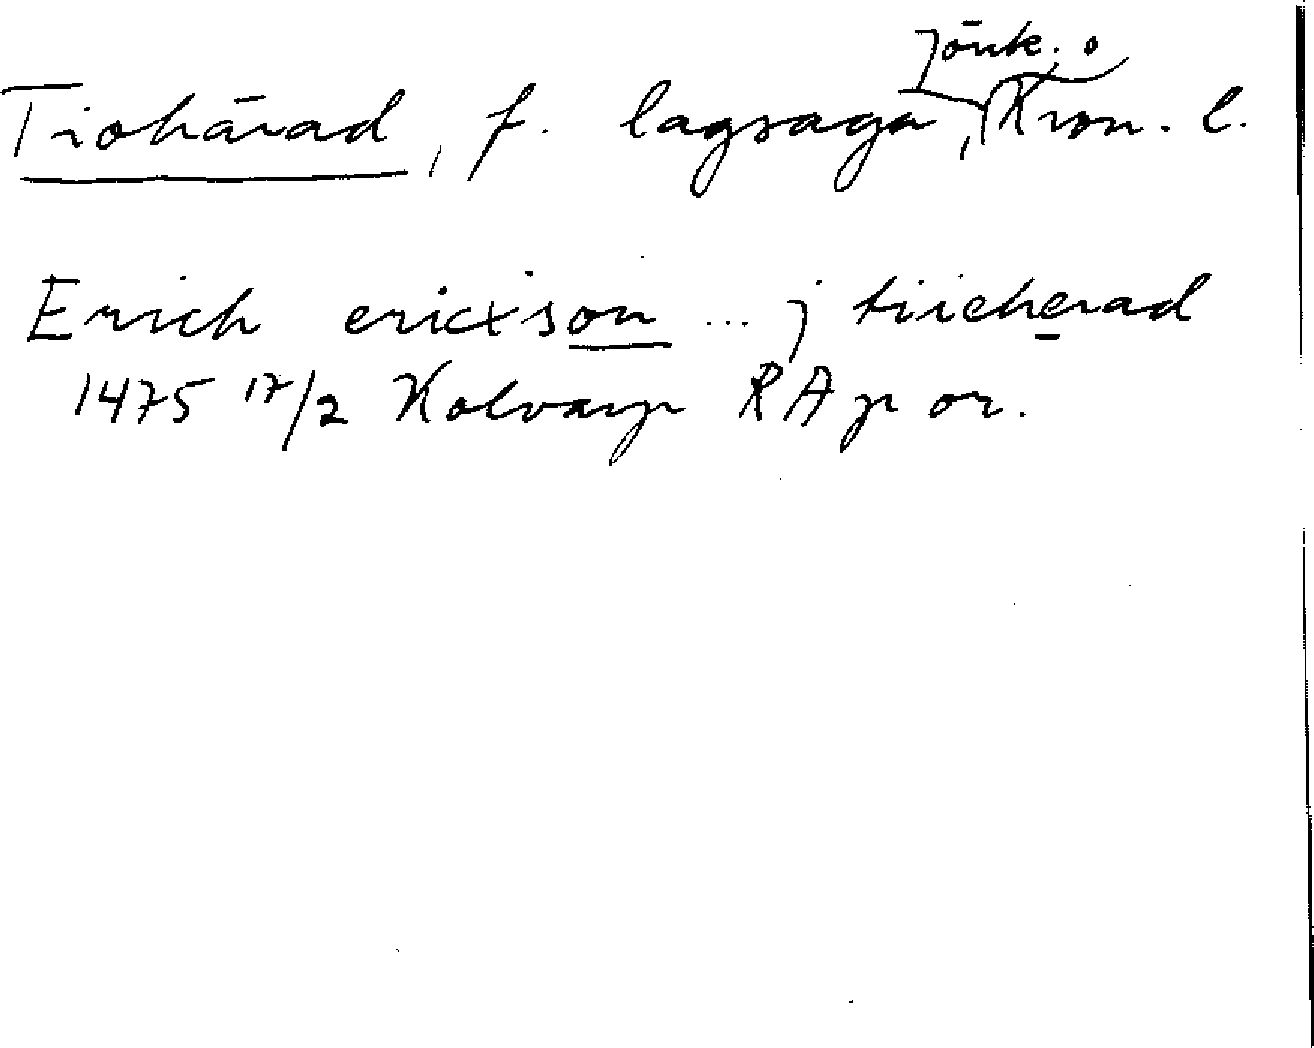 Tiohärad, f. lagsaga, Jönk. o Kron. l.
Erich ericxson ... j tiieherad
1475 17/2 Kolvarp RA p or.